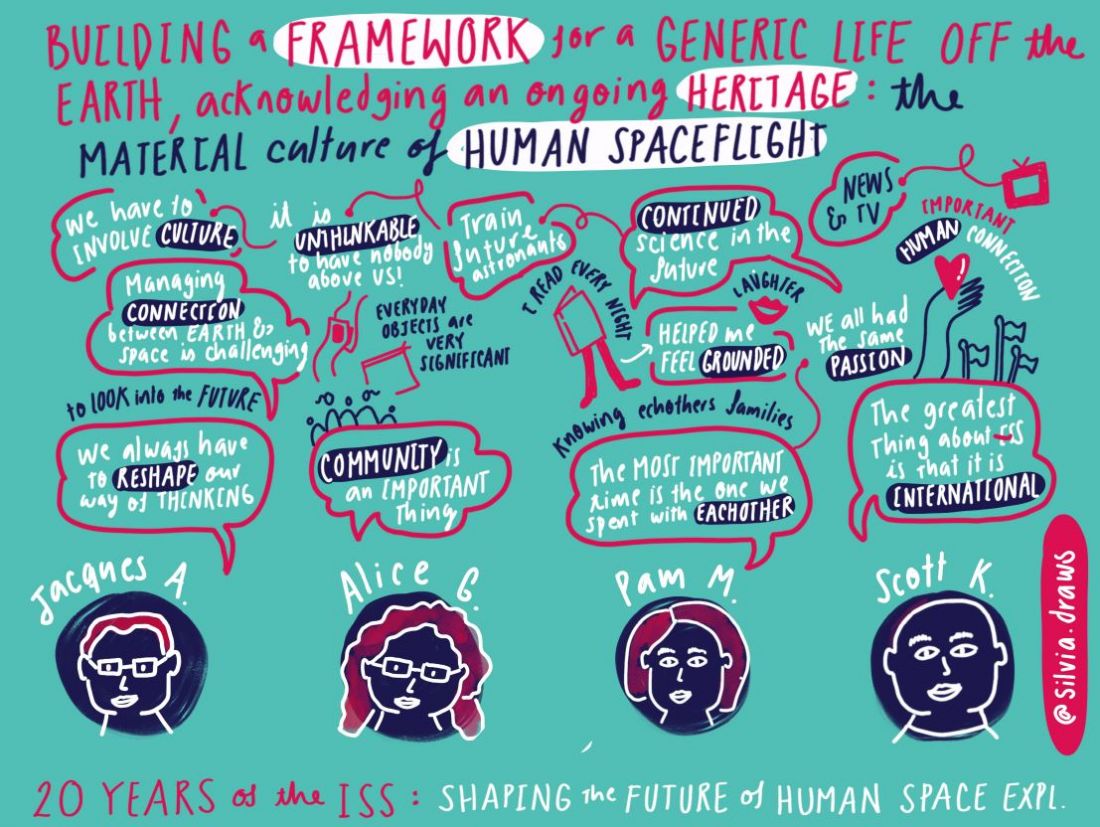 BUILDING a FRAMEWORK for a GENERIC LIFE OFF the
EARTH, acknowledging an ongoing HERITAGE: the
MATERIAL culture of HUMAN SPACEFLIGHT
we have to
INVOLVE CULTURE
it is
UNTHINKABLE
to have nobody
above US!
Train
future
astronants
CONTINUED
science in the
future
NEWS
& TV
IMPORTANT
HUMAN CONNECTION
Managing
CONNECTION
between EARTH &
space is challenging
EVERYDAY
OBJECTS are
VERY
SIGNIFICANT
I READ EVERY NIGHT
LAUGHTER
HELPED me
FEEL GROUNDED
WE all had
the same
PASSION
to LOOK into the FUTURE
Knowing echothers families
we always have
to RESHAPE our
way of THINKING
COMMUNITY is
an IMPORTANT
Thing
The MOST IMPORTANT
time is the one we
spent with EACHOTHER
The greatest
Thing about ISS
is that it is
INTERNATIONAL
Jacques A.
Alice G.
Pam M.
Scott K.
@silvia.draws
20 YEARS of the ISS: SHAPING the FUTURE of HUMAN SPACE EXPL.